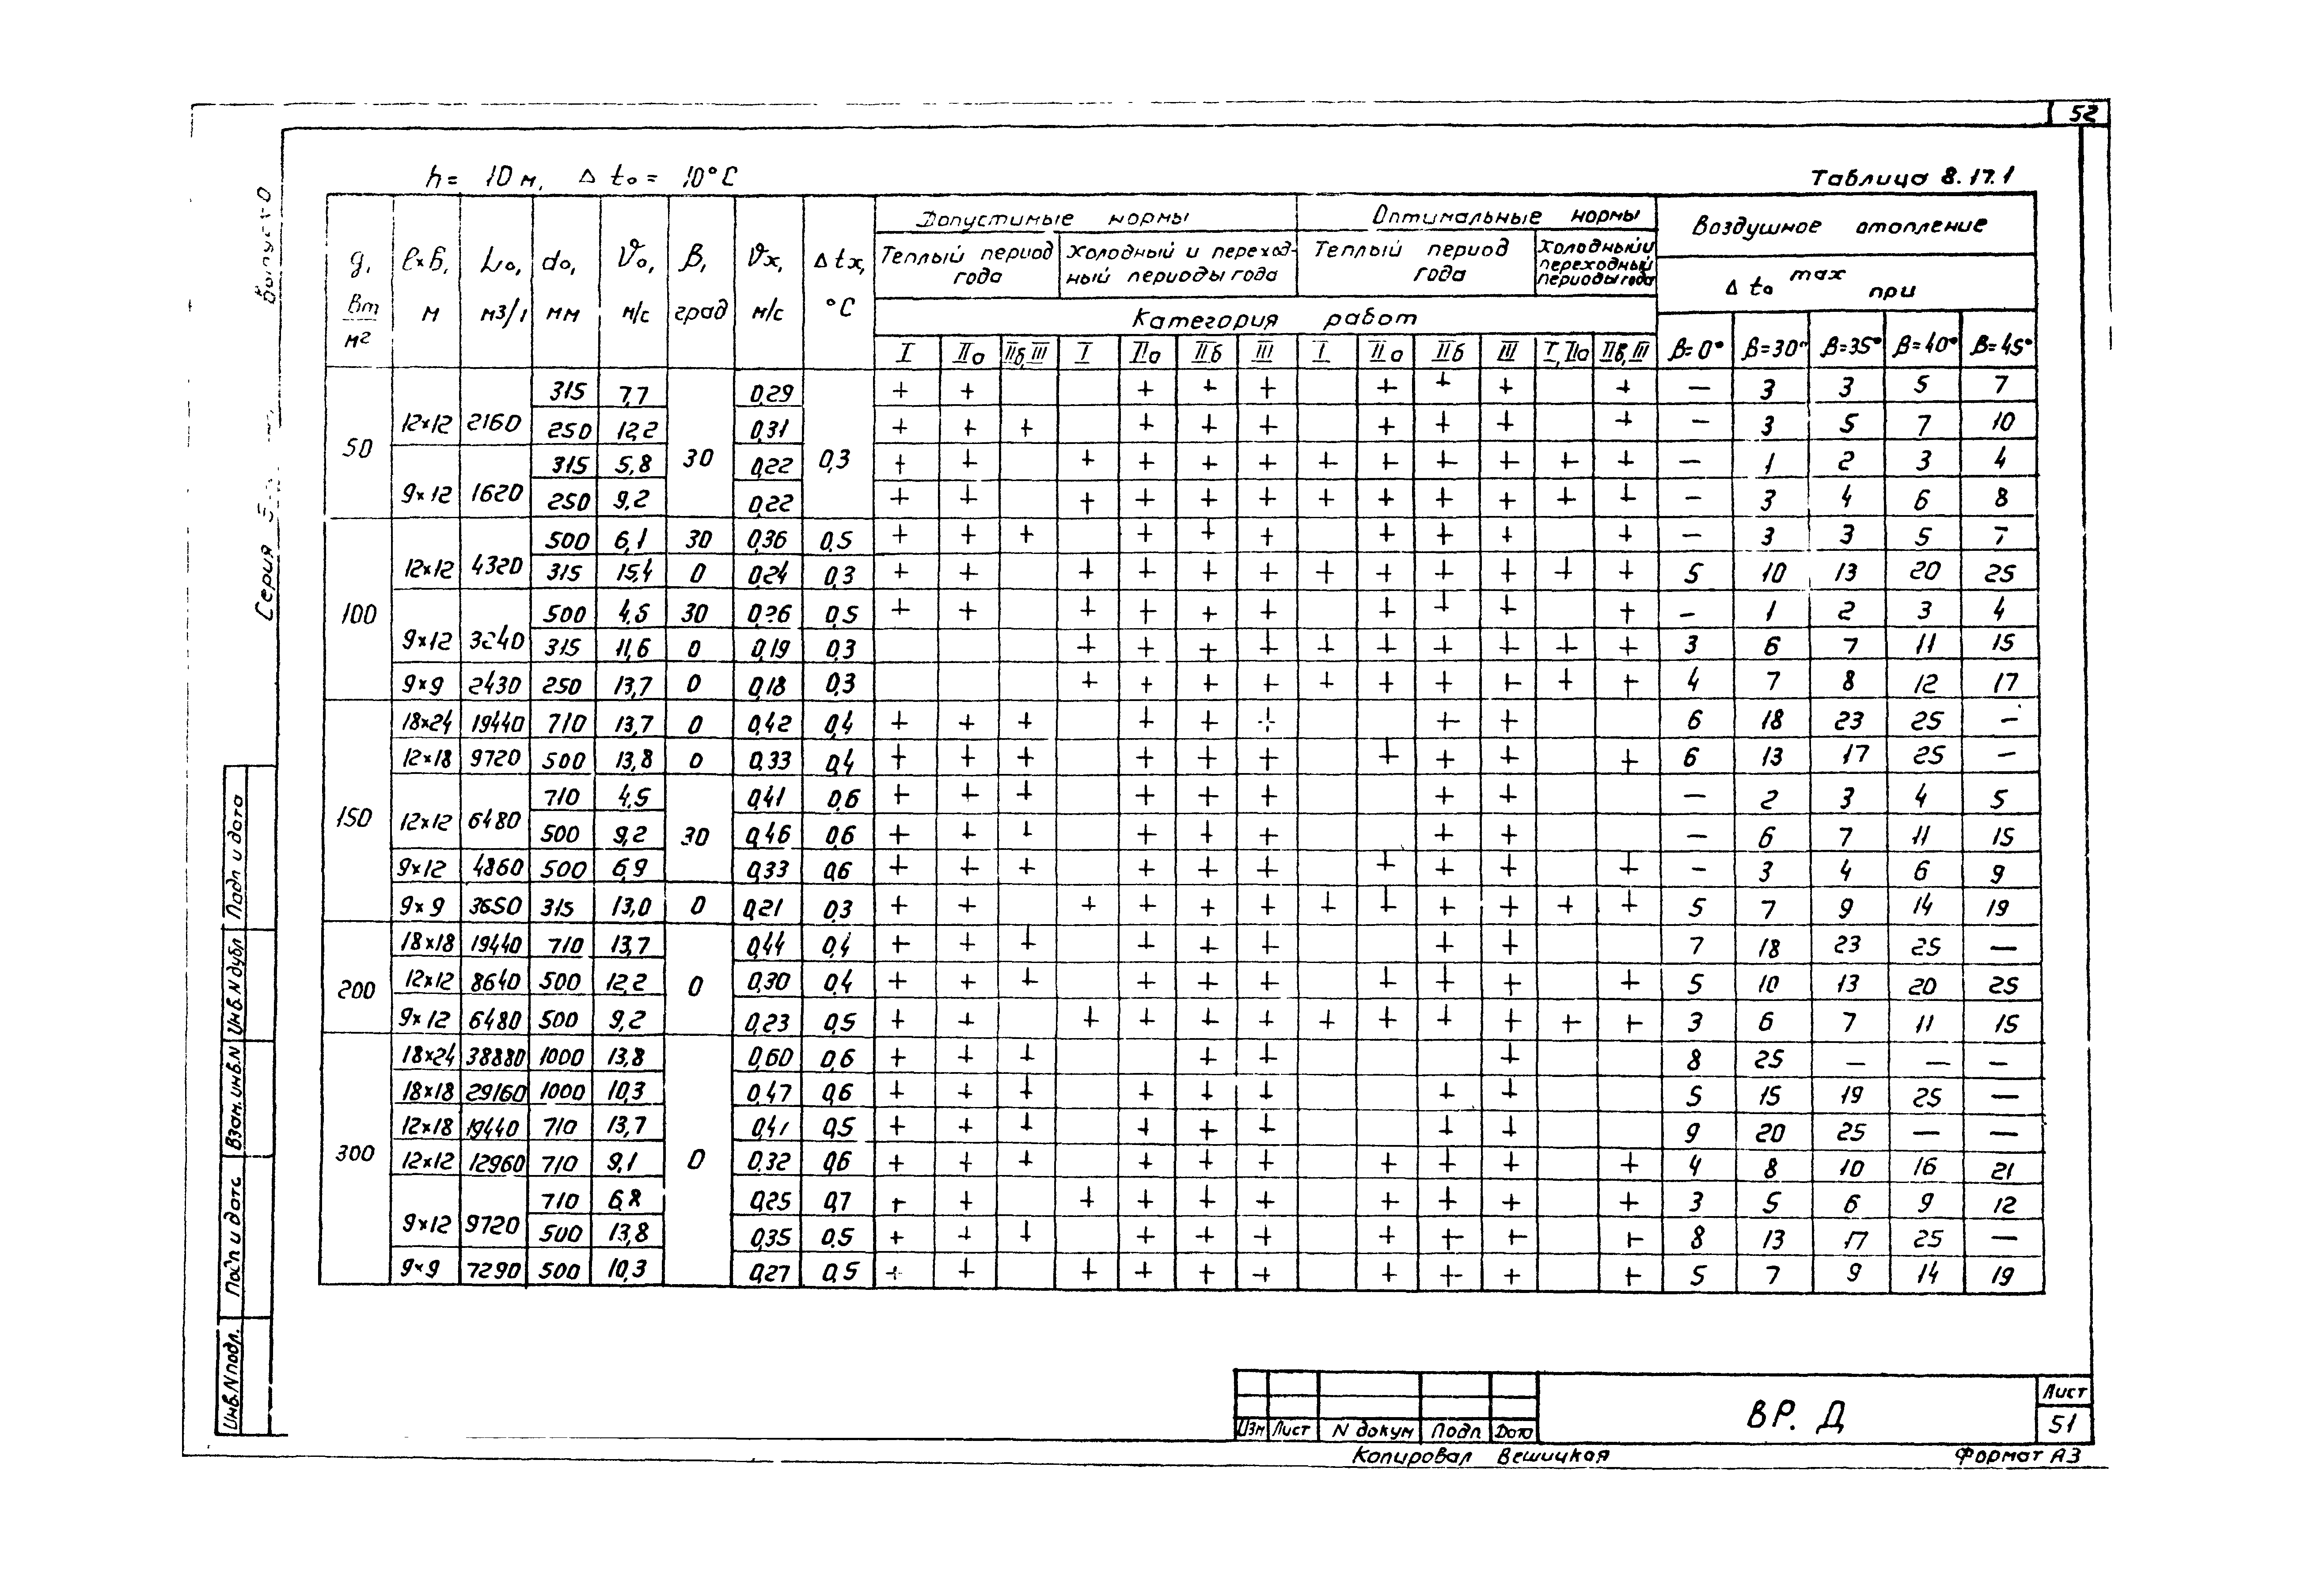 52
h= 10 м, Δ to = 10°С
Таблица 8.17.1
g, Вт/м² | l×b, м | Lo, м3/ | do, мм | Vo, м/с | β, град | Vx, м/с | Δtx, °С | Допустимые нормы | Оптимальные нормы | Воздушное отопление
Теплый период года | Холодный и переходный периоды года | Теплый период года | Холодный и переходный периоды года | Δ to max при
Категория работ
I | IIа | IIб,III | I | IIа | IIб | III | I | IIа | IIб | III | I,IIа | IIб,III | β=0° | β=30° | β=35° | β=40° | β=45°
50 | 12×12 | 2160 | 315 | 7,7 | 30 | 0,29 | 0,3 | + | + | | | + | + | + | | + | + | + | | + | — | 3 | 3 | 5 | 7
250 | 12,2 | 0,31 | + | + | + | | + | + | + | | + | + | + | | + | — | 3 | 5 | 7 | 10
9×12 | 1620 | 315 | 5,8 | 0,22 | + | + | | + | + | + | + | + | + | + | + | + | + | — | 1 | 2 | 3 | 4
250 | 9,2 | 0,22 | + | + | | + | + | + | + | + | + | + | + | + | + | — | 3 | 4 | 6 | 8
100 | 12×12 | 4320 | 500 | 6,1 | 30 | 0,36 | 0,5 | + | + | + | | + | + | + | | + | + | + | | + | — | 3 | 3 | 5 | 7
315 | 15,4 | 0 | 0,24 | 0,3 | + | + | | + | + | + | + | + | + | + | + | + | + | 5 | 10 | 13 | 20 | 25
9×12 | 3240 | 500 | 4,6 | 30 | 0,26 | 0,5 | + | + | | + | + | + | + | | + | + | + | | + | — | 1 | 2 | 3 | 4
315 | 11,6 | 0 | 0,19 | 0,3 | | | | + | + | + | + | + | + | + | + | + | + | 3 | 6 | 7 | 11 | 15
9×9 | 2430 | 250 | 13,7 | 0 | 0,18 | 0,3 | | | | + | + | + | + | + | + | + | + | + | + | 4 | 7 | 8 | 12 | 17
150 | 18×24 | 19440 | 710 | 13,7 | 0 | 0,42 | 0,4 | + | + | + | | + | + | + | | | + | + | | | 6 | 18 | 23 | 25 | —
12×18 | 9720 | 500 | 13,8 | 0 | 0,33 | 0,4 | + | + | + | | + | + | + | | + | + | + | | + | 6 | 13 | 17 | 25 | —
12×12 | 6480 | 710 | 4,5 | 30 | 0,41 | 0,6 | + | + | + | | + | + | + | | | + | + | | | — | 2 | 3 | 4 | 5
500 | 9,2 | 0,46 | 0,6 | + | + | + | | + | + | + | | | + | + | | | — | 6 | 7 | 11 | 15
9×12 | 4860 | 500 | 6,9 | 0,33 | 0,6 | + | + | + | | + | + | + | | + | + | + | | + | — | 3 | 4 | 6 | 9
9×9 | 3650 | 315 | 13,0 | 0 | 0,21 | 0,3 | + | + | | + | + | + | + | + | + | + | + | + | + | 5 | 7 | 9 | 14 | 19
200 | 18×18 | 19440 | 710 | 13,7 | 0 | 0,44 | 0,4 | + | + | + | | + | + | + | | | + | + | | | 7 | 18 | 23 | 25 | —
12×12 | 8640 | 500 | 12,2 | 0,30 | 0,4 | + | + | + | | + | + | + | | + | + | + | | + | 5 | 10 | 13 | 20 | 25
9×12 | 6480 | 500 | 9,2 | 0,23 | 0,5 | + | + | | + | + | + | + | + | + | + | + | + | + | 3 | 6 | 7 | 11 | 15
300 | 18×24 | 38880 | 1000 | 13,8 | 0 | 0,60 | 0,6 | + | + | + | | | + | + | | | | + | | | 8 | 25 | — | — | —
18×18 | 29160 | 1000 | 10,3 | 0,47 | 0,6 | + | + | + | | + | + | + | | | + | + | | | 5 | 15 | 19 | 25 | —
12×18 | 19440 | 710 | 13,7 | 0,41 | 0,5 | + | + | + | | + | + | + | | | + | + | | | 9 | 20 | 25 | — | —
12×12 | 12960 | 710 | 9,1 | 0,32 | 0,6 | + | + | + | | + | + | + | | + | + | + | | + | 4 | 8 | 10 | 16 | 21
9×12 | 9720 | 710 | 6,8 | 0,25 | 0,7 | + | + | | + | + | + | + | | + | + | + | | + | 3 | 5 | 6 | 9 | 12
500 | 13,8 | 0,35 | 0,5 | + | + | + | | + | + | + | | + | + | + | | + | 8 | 13 | 17 | 25 | —
9×9 | 7290 | 500 | 10,3 | 0,27 | 0,5 | + | + | | + | + | + | + | | + | + | + | | + | 5 | 7 | 9 | 14 | 19
Серия
Выпуск 0
Подп и дата
Инв.N дубл
Взам.инв.N
Подп и дата
Инв.N подл.
Изм | Лист | N докум | Подп | Дата
ВР. Д
Лист
51
Копировал Вешицкая
Формат А3